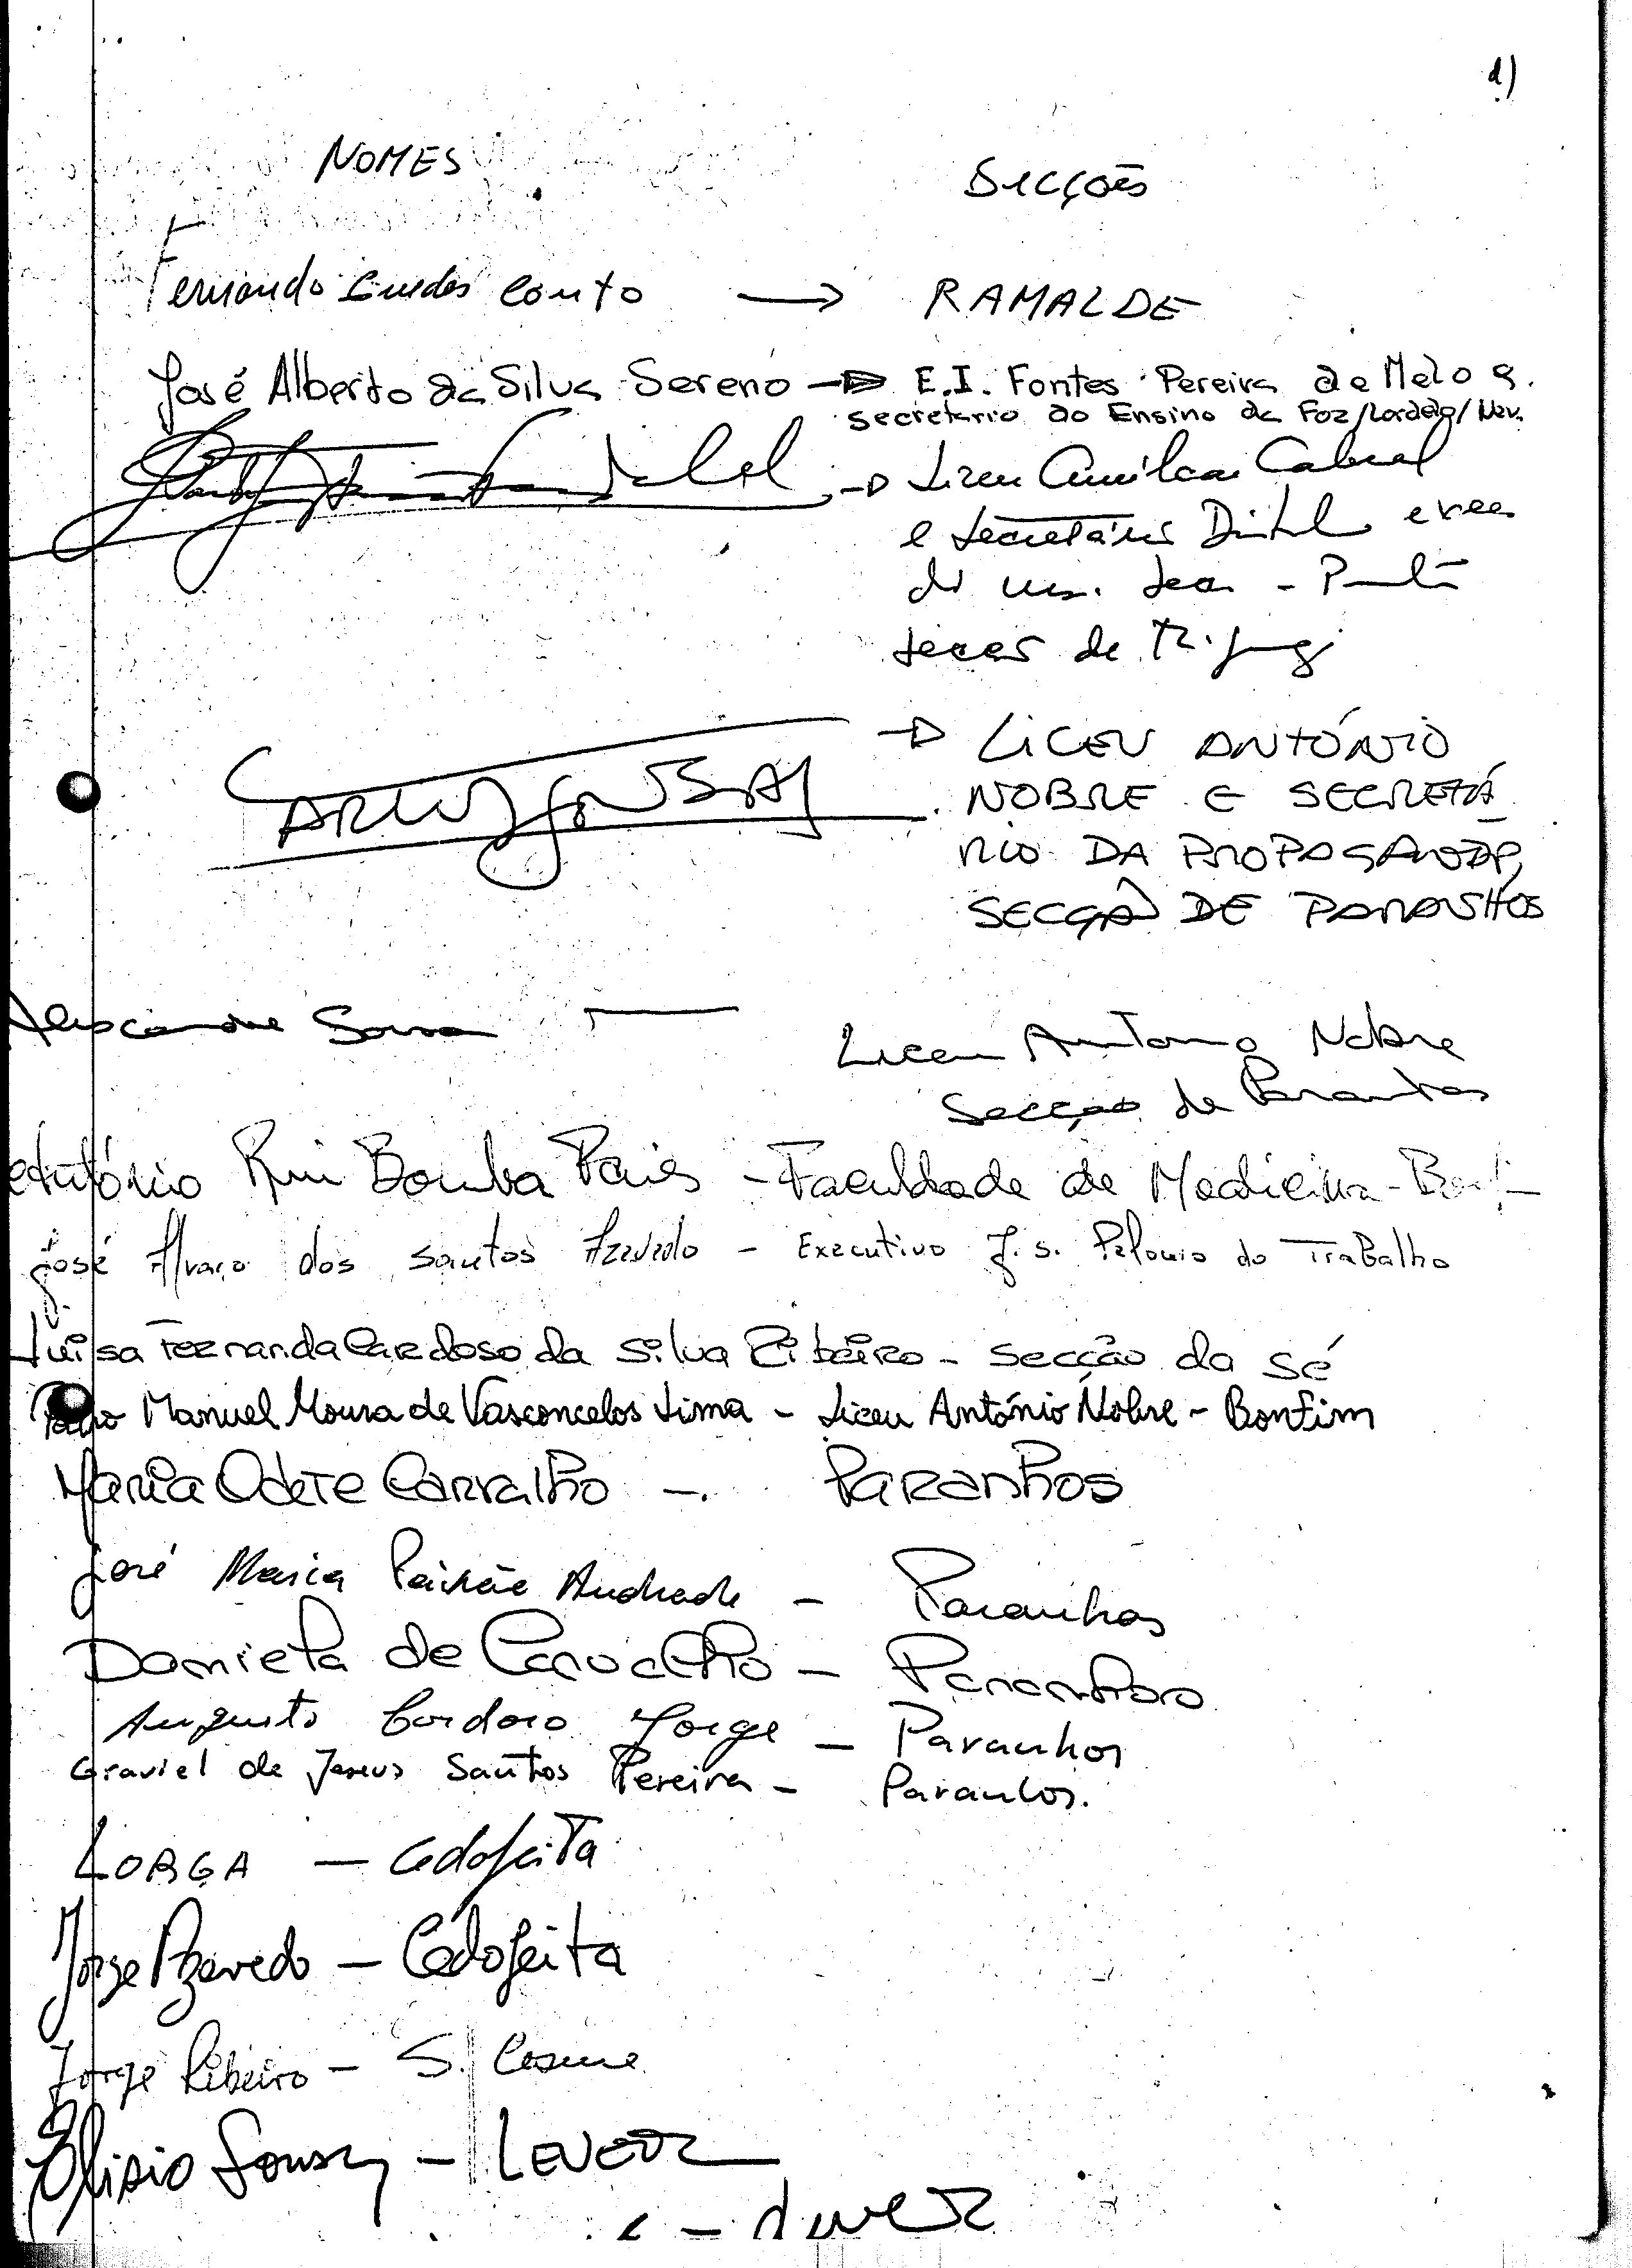 d)
NOMES
SECÇÕES
Fernando Guedes Couto → RAMALDE
José Alberto da Silva Sereno → E.I. Fontes Pereira de Melo e.
secretario do Ensino da Foz/Lordelo/Nev.
→ Liceu Amilcar Cabral
e secretário
de
→ LICEU ANTÓNIO
NOBRE E SECRETÁ
RIO DA PROPAGANDA,
SECÇÃO DE PARANHOS
Alexandre Sousa —
Liceu Antonio Nobre
Secção de Paranhos
António Rui Bomba Pais - Faculdade de Medicina -
José Alvaro dos Santos Azevedo - Executivo J.S. Pelouro do Trabalho
Luisa Fernanda Cardoso da Silva Ribeiro - Secção da Sé
Manuel Moura de Vasconcelos Lima - Liceu António Nobre - Bonfim
Maria Odete Carvalho - Paranhos
José Maria Paixão Andrade - Paranhos
Daniela de Carvalho - Paranhos
Augusto Cardoso Jorge - Paranhos
Graviel de Jesus Santos Pereira - Paranhos.
LORGA - Cedofeita
Jorge Azevedo - Cedofeita
Jorge Ribeiro - S. Cosme
Elisio Sousa - LEVER